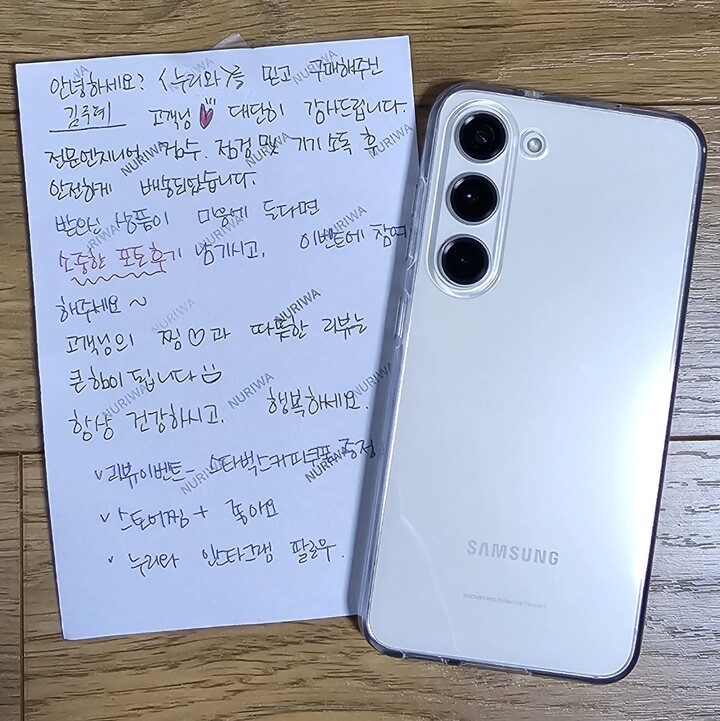 안녕하세요? <누리와>를 믿고 구매해주신
김주례 고객님 대단히 감사드립니다.
전문엔지니어 검수. 점검 및 기기 소독 후
안전하게 배송되었습니다.
받으신 상품이 마음에 드다면
소중한 포토후기 남기시고, 이벤트에 참여
해주세요~
고객님의 찜♡과 따뜻한 리뷰는
큰힘이 됩니다
항상 건강하시고. 행복하세요.
v 리뷰이벤트- 스타벅스커피쿠폰 증정
v 스토어찜 + 좋아요
v 누리와 인스타그램 팔로우.
NURIWA
NURIWA
NURIWA
NURIWA
NURIWA
NURIWA
NURIWA
NURIWA
NURIWA
NURIWA
NURIWA
NURIWA
SAMSUNG